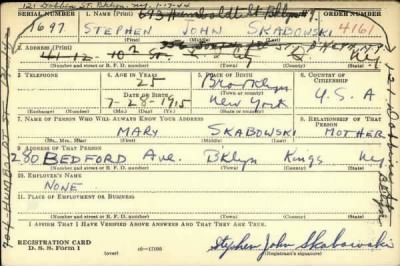 Bklyn. N.Y. 1-17-44
SERIAL NUMBER 1. NAME (Print)
1697 STEPHEN JOHN SKABOWSKI 4161
(First) (Middle) (Last)
2. ADDRESS (Print)
(Number and street or R. F. D. number) (Town) (County) (State)
3. TELEPHONE 4. AGE IN YEARS 5. PLACE OF BIRTH 6. COUNTRY OF CITIZENSHIP
25 Brooklyn
DATE OF BIRTH (Town or county)
7-28-1915 New York U.S.A
(Exchange) (Number) (Mo.) (Day) (Yr.) (State or country)
7. NAME OF PERSON WHO WILL ALWAYS KNOW YOUR ADDRESS 8. RELATIONSHIP OF THAT PERSON
MARY SKABOWSKI MOTHER
(Mr., Mrs., Miss) (First) (Middle) (Last)
9. ADDRESS OF THAT PERSON
280 BEDFORD Ave. Bklyn Kings Ny
(Number and street or R. F. D. number) (Town) (County) (State)
10. EMPLOYER'S NAME
NONE
11. PLACE OF EMPLOYMENT OR BUSINESS
(Number and street or R. F. D. number) (Town) (County) (State)
I AFFIRM THAT I HAVE VERIFIED ABOVE ANSWERS AND THAT THEY ARE TRUE.
REGISTRATION CARD
D. S. S. Form 1 16-17105 Stephen John Skabowski
(Registrant's signature)